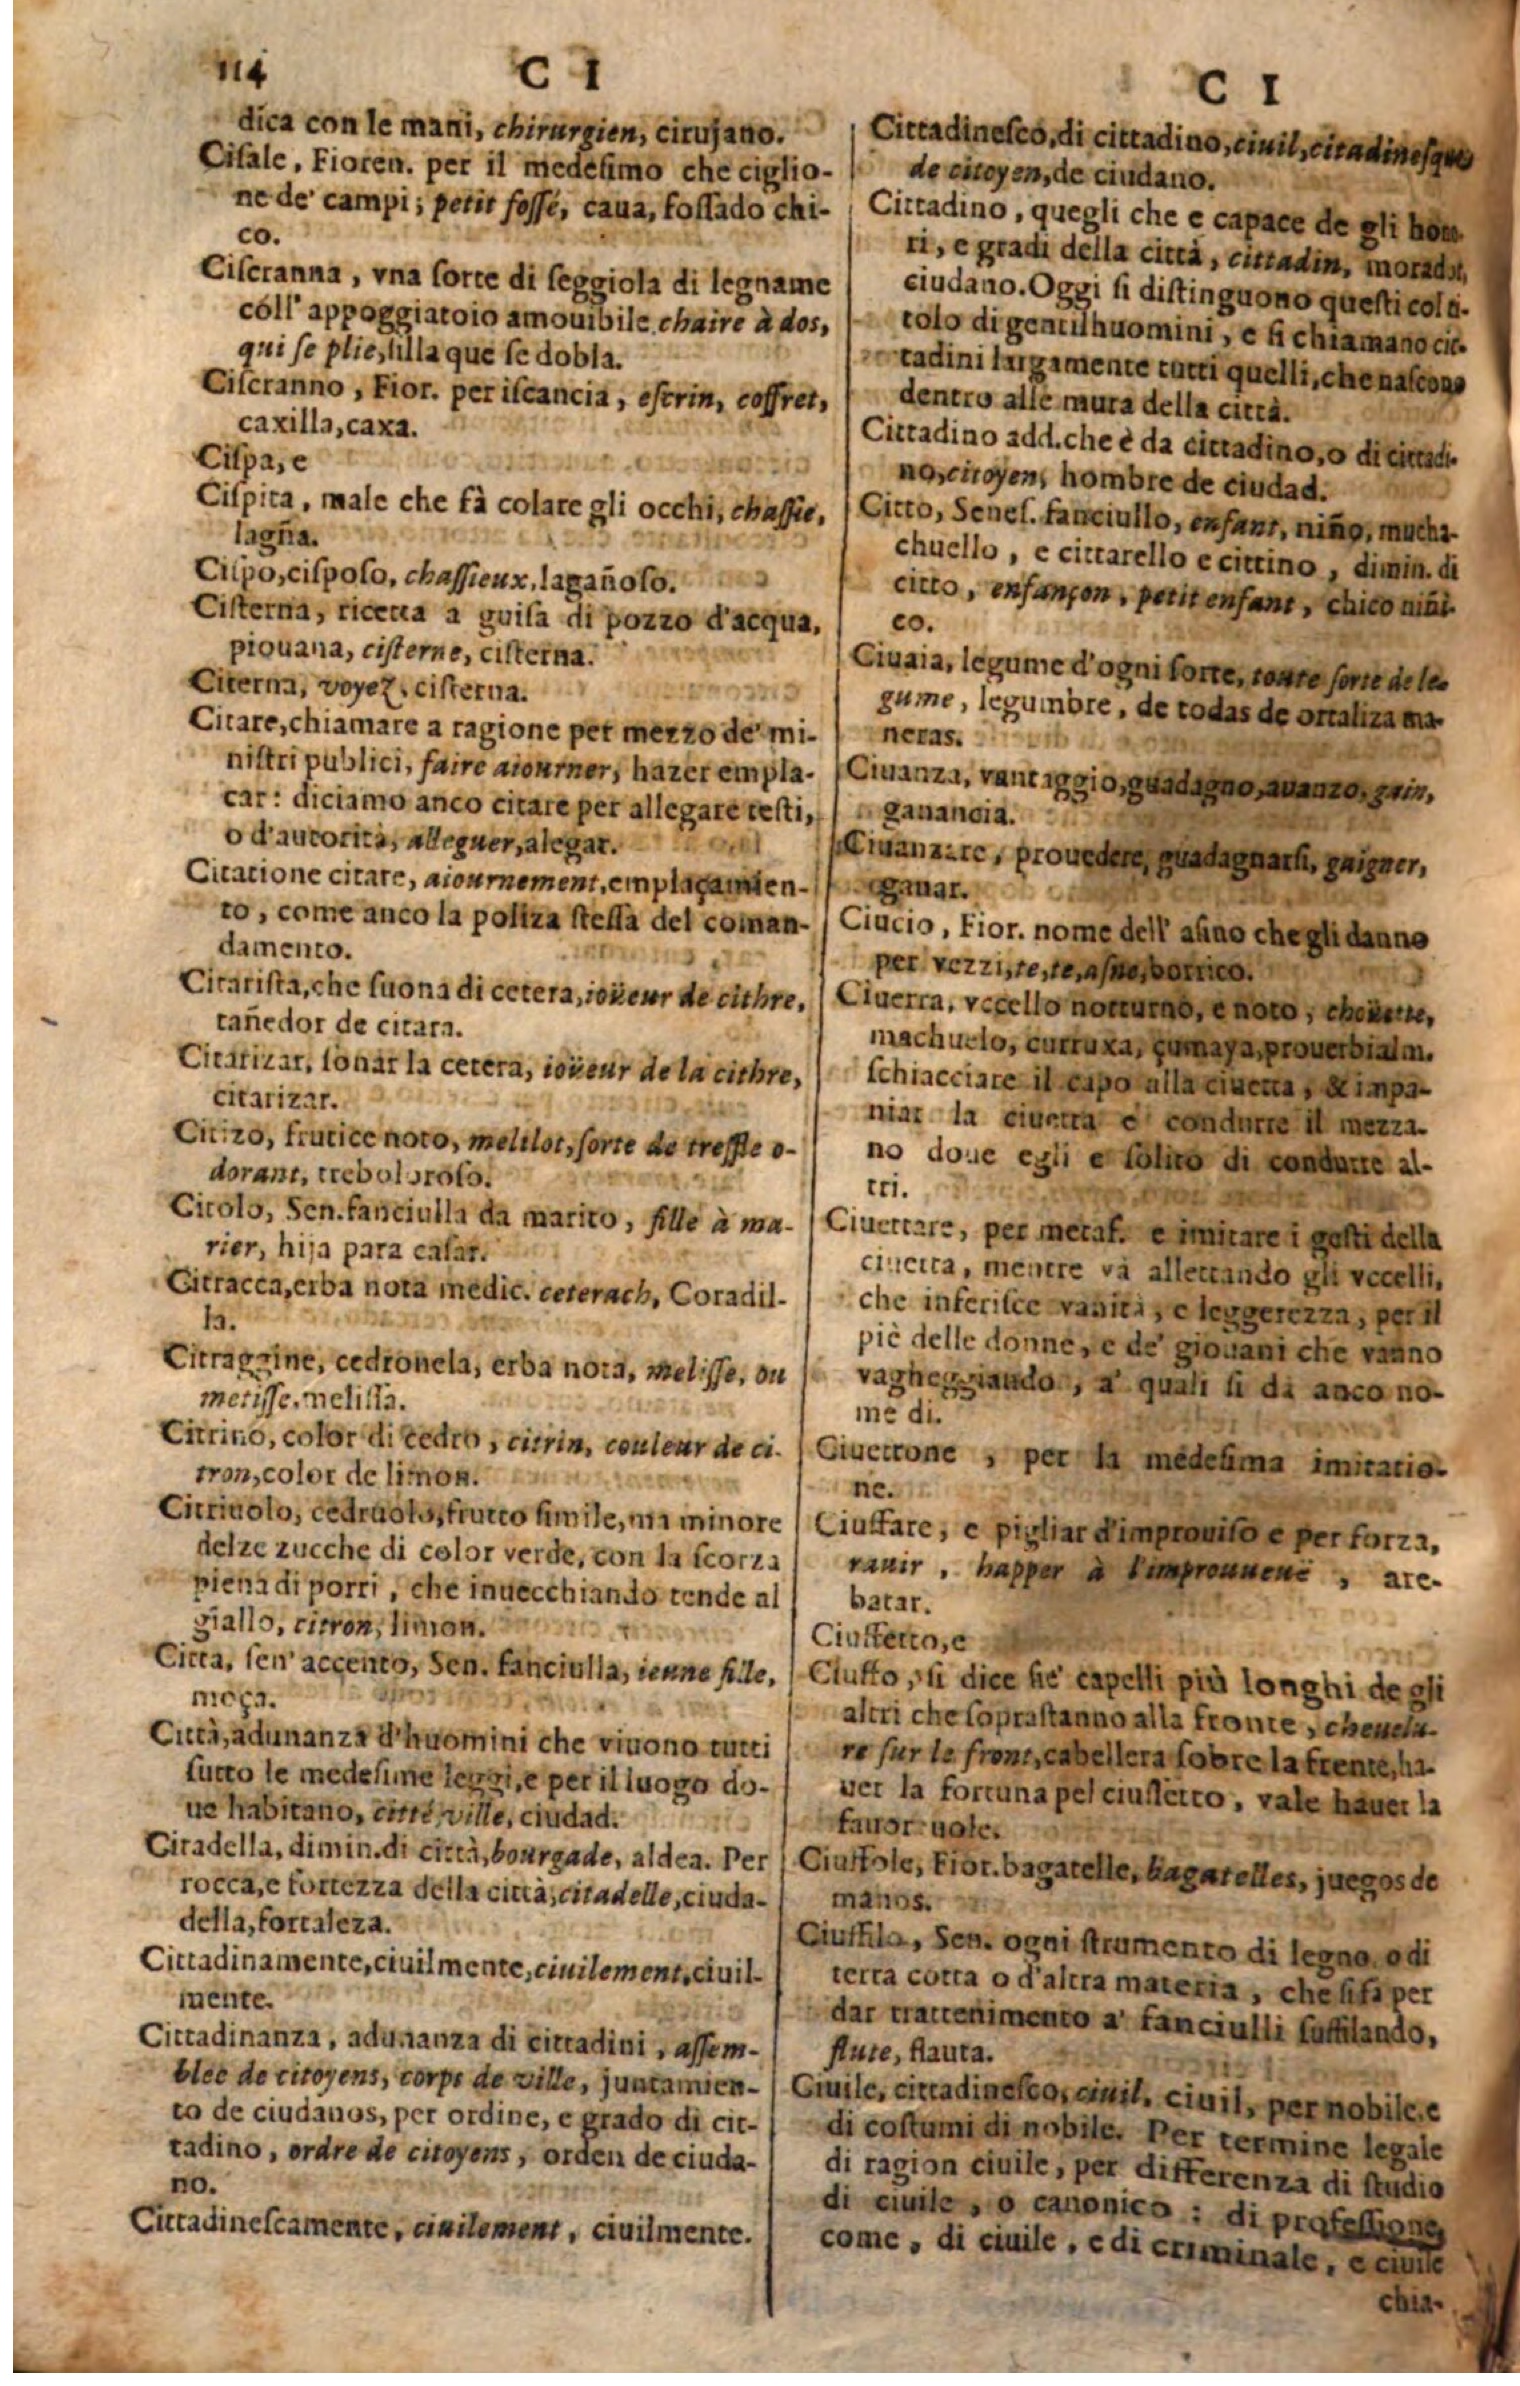 114 C I
dica con le mani, chirurgien, cirujano.
Ciſale, Fioren. per il medeſimo che ciglio-
ne de' campi; petit foſſé, caua, foſſado chi-
co.
Ciſcranna, vna ſorte di ſeggiola di legname
coll' appoggiatoio amouibile, chaire à dos,
qui ſe plie, ſilla que ſe dobla.
Ciſcranno, Fior. per iſcancia, eſcrin, coffret,
caxilla, caxa.
Ciſpa, e
Ciſpita, male che fà colare gli occhi, chaſſie,
lagña.
Ciſpo, ciſpoſo, chaſſieux, lagañoſo.
Ciſterna, ricetta a guiſa di pozzo d'acqua,
piouana, ciſterne, ciſterna.
Citerna, voyez, ciſterna.
Citare, chiamare a ragione per mezzo de' mi-
niſtri publici, faire aiourner, hazer empla-
car: diciamo anco citare per allegare teſti,
o d'autorità, alleguer, alegar.
Citatione citare, aiournement, emplaçamien-
to, come anco la poliza ſteſſa del coman-
damento.
Citariſta, che ſuona di cetera, ioüeur de cithre,
tañedor de citara.
Citarizar, ſonar la cetera, ioüeur de la cithre,
citarizar.
Citizo, frutice noto, melilot, ſorte de treffle o-
dorant, trebol oroſo.
Citolo, Sen. fanciulla da marito, fille à ma-
rier, hija para caſar.
Citracca, erba nota medic. ceterach, Coradil-
la.
Citraggine, cedronela, erba nota, meliſſe, ou
metiſſe, meliſſa.
Citrino, color di cedro, citrin, couleur de ci-
tron, color de limon.
Citriuolo, cedruolo, frutto ſimile, ma minore
delze zucche di color verde, con la ſcorza
piena di porri, che inuecchiando tende al
giallo, citron, limon.
Citta, ſen' accento, Sen. fanciulla, ieune fille,
moça.
Città, adunanza d'huomini che viuono tutti
ſutto le medeſime leggi, e per il luogo do-
ue habitano, citté, ville, ciudad.
Citadella, dimin. di città, bourgade, aldea. Per
rocca, e fortezza della città, citadelle, ciuda-
della, fortaleza.
Cittadinamente, ciuilmente, ciuilement, ciuil-
mente.
Cittadinanza, adunanza di cittadini, aſſem-
blee de citoyens, corps de ville, juntamien-
to de ciudanos, per ordine, e grado di cit-
tadino, ordre de citoyens, orden de ciuda-
no.
Cittadineſcamente, ciuilement, ciuilmente.
C I
Cittadineſco, di cittadino, ciuil, citadineſque
de citoyen, de ciudano.
Cittadino, quegli che e capace de gli hono-
ri, e gradi della città, cittadin, morador,
ciudano. Oggi ſi diſtinguono queſti col ti-
tolo di gentilhuomini, e ſi chiamano cit-
tadini largamente tutti quelli, che naſcono
dentro alle mura della città.
Cittadino add. che è da cittadino, o di cittadi-
no, citoyen, hombre de ciudad.
Citto, Seneſ. fanciullo, enfant, niño, mucha-
chuello, e cittarello e cittino, dimin. di
citto, enfançon, petit enfant, chico niñi-
co.
Ciuaia, legume d'ogni ſorte, toute ſorte de le-
gume, legumbre, de todas de ortaliza ma-
neras.
Ciuanza, vantaggio, guadagno, auanzo, gain,
ganancia.
Ciuanzare, prouedere, guadagnarſi, gaigner,
ganar.
Ciucio, Fior. nome dell' aſino che gli danno
per vezzi, te, te, aſne, borrico.
Ciuetta, vccello notturno, e noto, choüette,
machuelo, curruxa, çumaya, prouerbialm.
ſchiacciare il capo alla ciuetta, & impa-
niar la ciuetta e condurre il mezza-
no doue egli e ſolito di condurre al-
tri.
Ciuettare, per metaf. e imitare i geſti della
ciuetta, mentre và allettando gli vccelli,
che inferiſce vanità, e leggerezza, per il
piè delle donne, e de' giouani che vanno
vagheggiando, a' quali ſi da anco no-
me di.
Ciuettone, per la medeſima imitatio-
ne.
Ciuffare, e pigliar d'improuiſo e per forza,
rauir, happer à l'improuueuë, are-
batar.
Ciuffetto, e
Ciuffo, ſi dice ſie' capelli più longhi de gli
altri che ſopraſtanno alla fronte, cheuelu-
re ſur le front, cabellera ſobre la frente, ha-
uer la fortuna pel ciuffetto, vale hauer la
fauoreuole.
Ciuffole, Fior. bagatelle, bagatelles, juegos de
manos.
Ciuffilo, Sen. ogni ſtrumento di legno o di
terra cotta o d'altra materia, che ſi fa per
dar trattenimento a' fanciulli ſuffilando,
flute, flauta.
Ciuile, cittadineſco, ciuil, ciuil, per nobile, e
di coſtumi di nobile. Per termine legale
di ragion ciuile, per differenza di ſtudio
di ciuile, o canonico: di profeſſione,
come, di ciuile, e di criminale, e ciuile
chia-